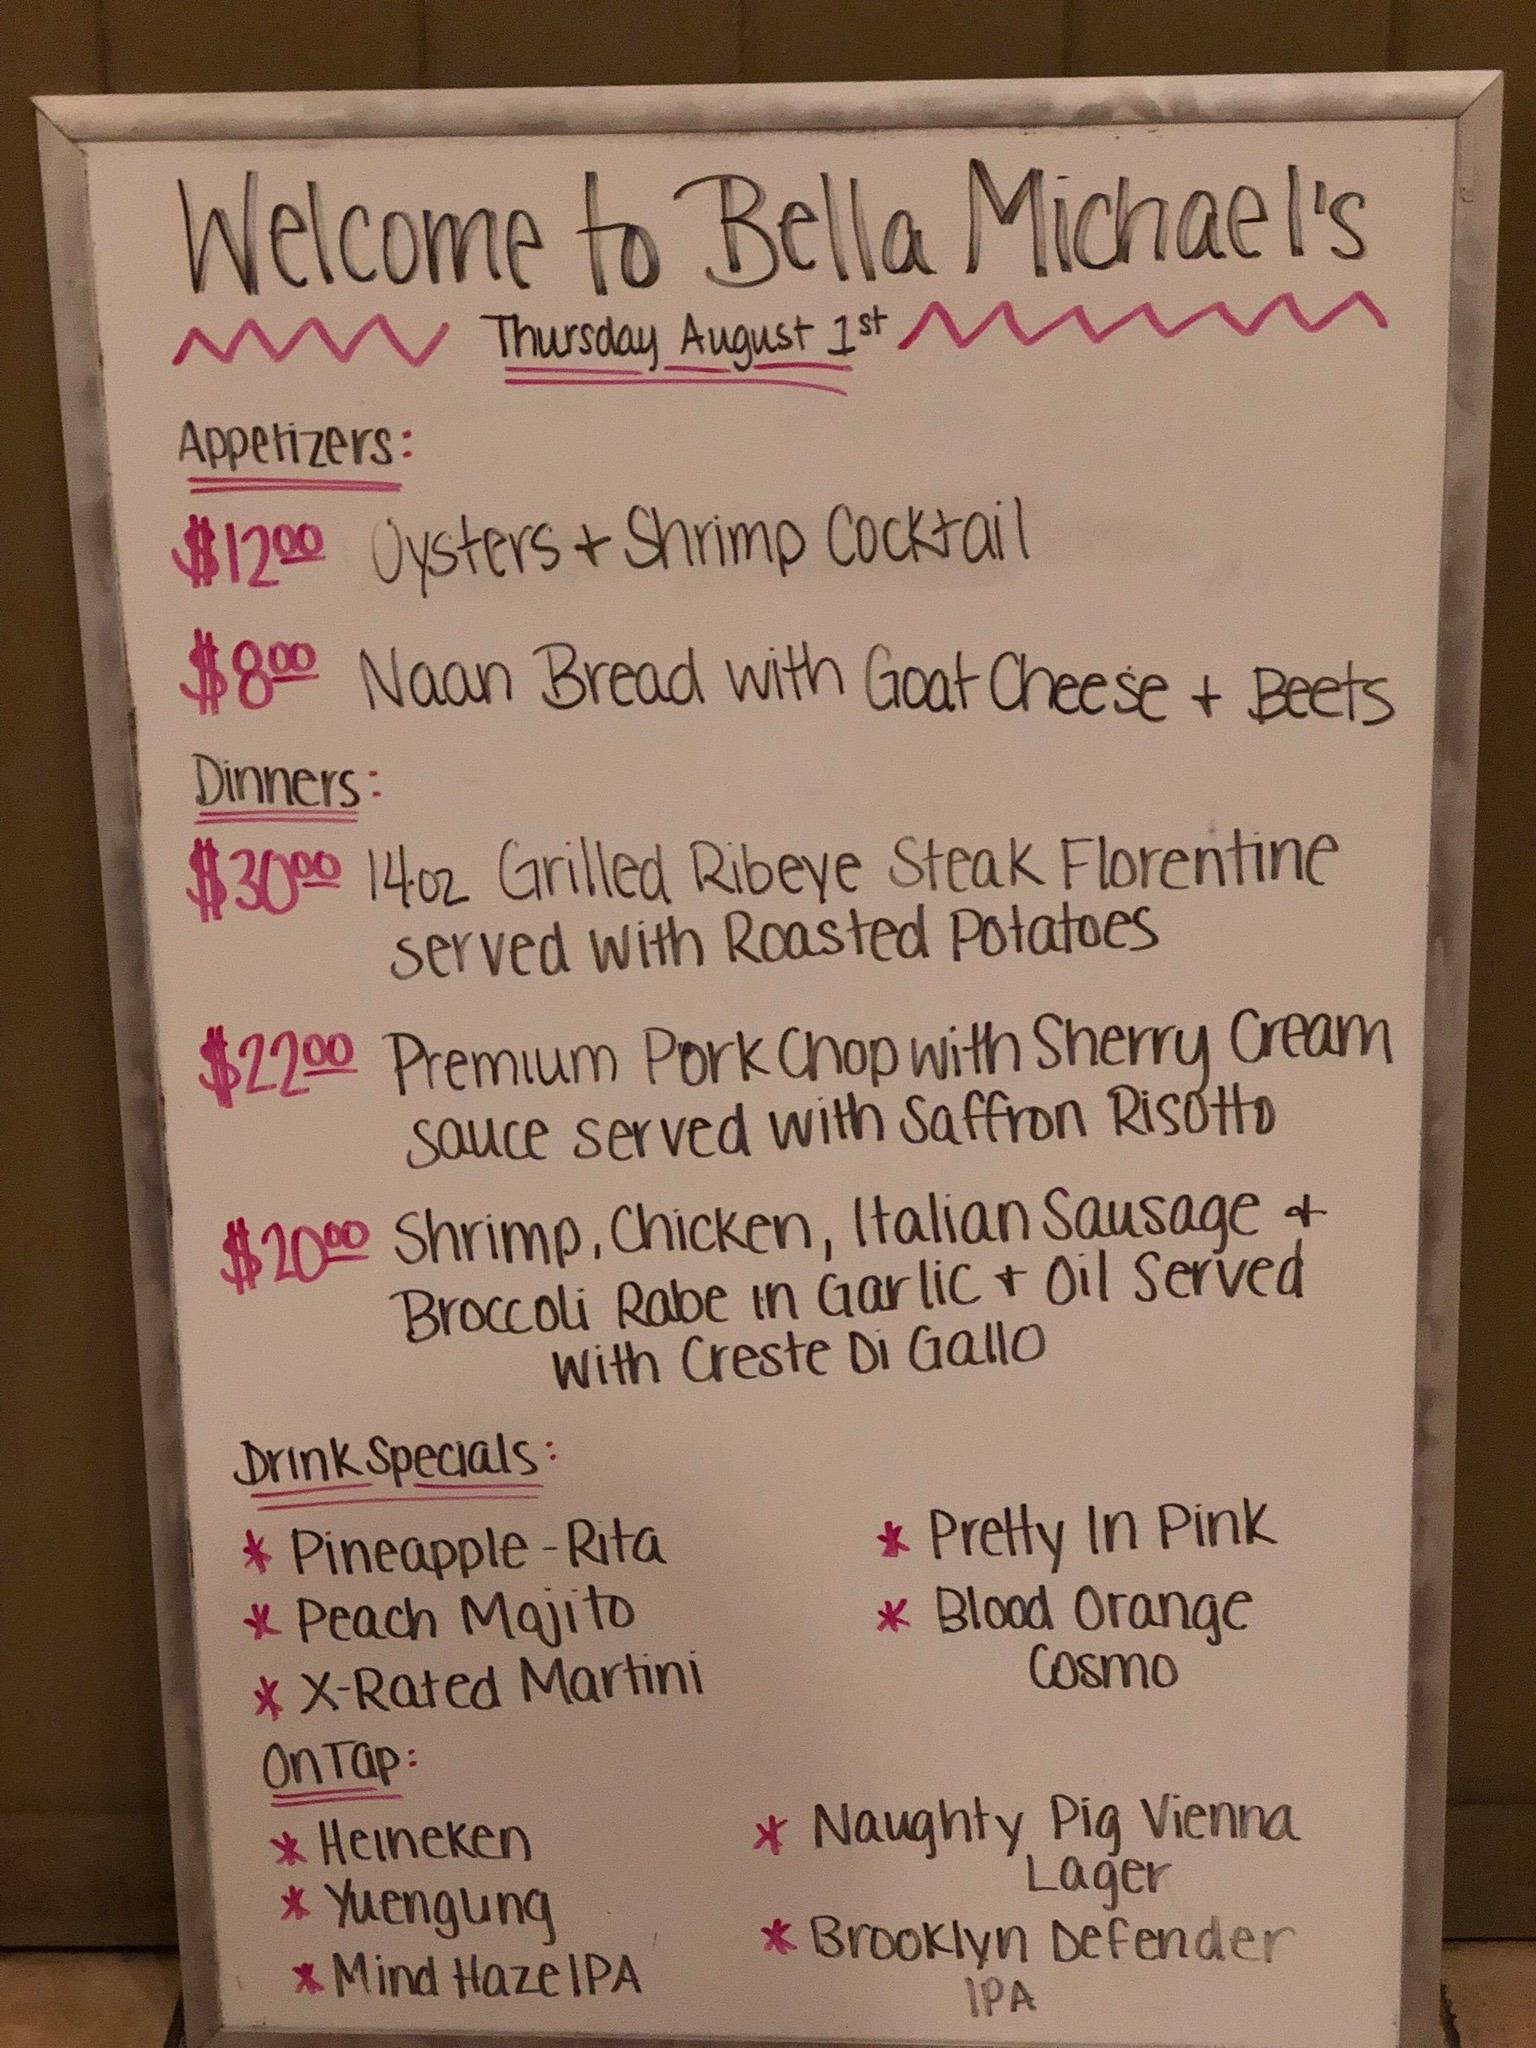 Welcome to Bella Michael's
Thursday August 1st
Appetizers:
$12.00 Oysters + Shrimp Cocktail
$8.00 Naan Bread with Goat Cheese + Beets
Dinners:
$30.00 14oz Grilled Ribeye Steak Florentine
served with Roasted Potatoes
$22.00 Premium Pork Chop with Sherry Cream
sauce served with Saffron Risotto
$20.00 Shrimp, Chicken, Italian Sausage +
Broccoli Rabe in Garlic + Oil Served
with Creste Di Gallo
Drink Specials:
* Pineapple-Rita
* Peach Mojito
* X-Rated Martini
* Pretty In Pink
* Blood Orange
Cosmo
On Tap:
* Heineken
* Yuengung
* Mind Haze IPA
* Naughty Pig Vienna
Lager
* Brooklyn Defender
IPA